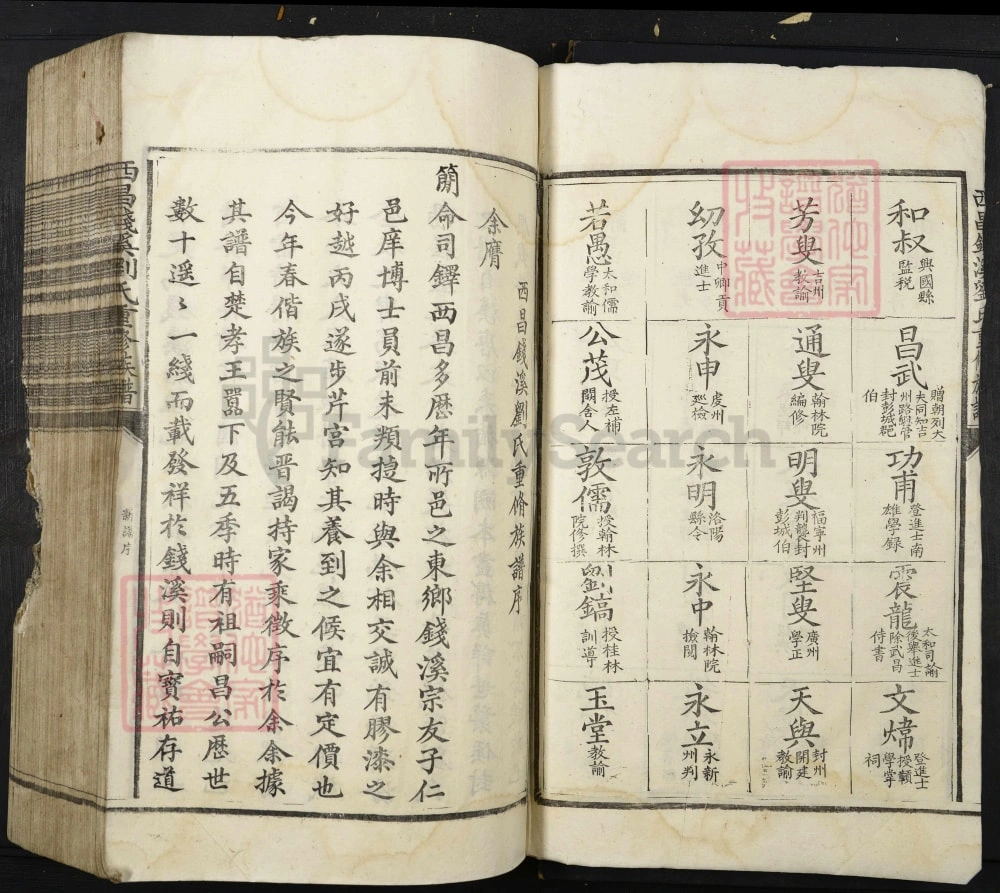 和叔 興國縣監税
昌武 贈朝列大夫同知吉州路緫管封彭城郡伯
功甫 登進士南雄學録
震龍 太和司諭後舉進士除武昌侍書
文煒 登進士授贛學掌祠
芳叟 吉州教諭
通叟 翰林院編修
明叟 福寧州判襲封彭城伯
堅叟 廣州學正
天與 封州開建教諭
幼孜 中卿貢進士
永申 處州廵檢
永明 洛陽縣令
永中 翰林院檢閲
永立 永新州判
若愚 太和儒學教諭
公茂 授左補闕舍人
敦儒 授翰林院修撰
劉鎬 授桂林訓導
玉堂 教諭
西昌錢溪劉氏重脩族譜序
余膺
簡命司鐸西昌多歷年所邑之東鄉錢溪宗友子仁
邑庠博士員前未類㨗時與余相交誠有膠漆之
好越丙戌遂步芹宮知其養到之候宜有定價也
今年春偕族之賢能晋謁持家乘徵序於余余據
其譜自楚孝王囂下及五季時有祖嗣昌公歷世
數十遥〻一綫而載發祥於錢溪則自寳祐存道
西昌錢溪劉氏重修族譜
FamilySearch